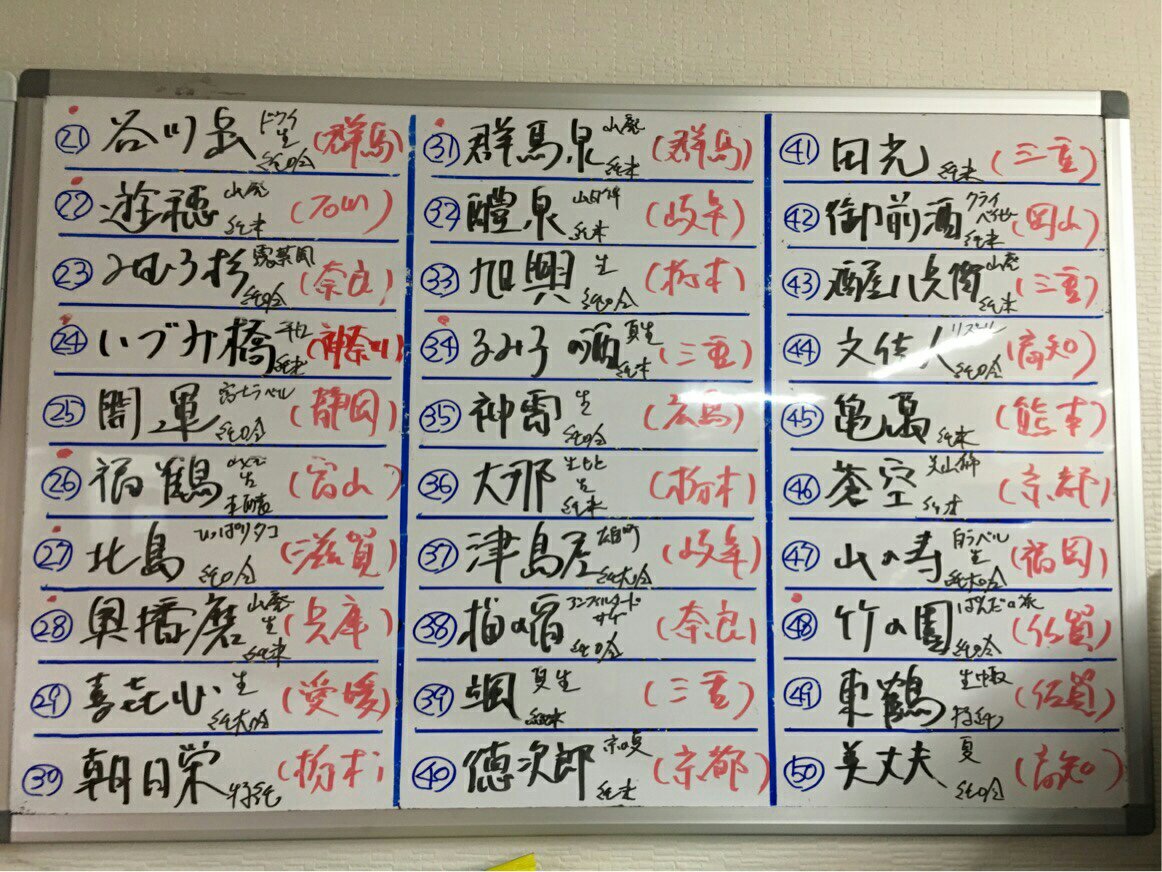 ㉑ 谷川岳 ドライ 生 純吟 (群馬)
㉒ 遊穂 山廃 純米 (石川)
㉓ みむろ杉 露葉風 純吟 (奈良)
㉔ いづみ橋 純米 (神奈川)
㉕ 開運 富士ラベル 純吟 (静岡)
㉖ 福鶴 生 本醸 (富山)
㉗ 北島 ひっぱりタコ 純吟 (滋賀)
㉘ 奥播磨 山廃 生 純米 (兵庫)
㉙ 喜七心 生 純大吟 (愛媛)
㉚ 朝日栄 特純 (栃木)
㉛ 群馬泉 山廃 純米 (群馬)
㉜ 醴泉 山田錦 純米 (岐阜)
㉝ 旭興 生 純吟 (栃木)
㉞ るみ子の酒 夏生 純米 (三重)
㉟ 神雷 生 純吟 (広島)
㊱ 大那 生もと 生 純米 (栃木)
㊲ 津島屋 雄町 純大吟 (岐阜)
㊳ 梅の宿 アンフィルタード サケ 純吟 (奈良)
㊴ 颯 夏生 純米 (三重)
㊵ 徳次郎 京の夏 純米 (京都)
㊶ 田光 純米 (三重)
㊷ 御前酒 クライ ベイビー 純米 (岡山)
㊸ 酒屋八兵衛 山廃 純米 (三重)
㊹ 文佳人 リズール 純吟 (高知)
㊺ 亀萬 純米 (熊本)
㊻ 蒼空 美山錦 純米 (京都)
㊼ 山の寿 白ラベル 生 純大吟 (福岡)
㊽ 竹の園 ぱんだの祭 純吟 (佐賀)
㊾ 東鶴 生中取 特純 (佐賀)
㊿ 美丈夫 夏 純吟 (高知)